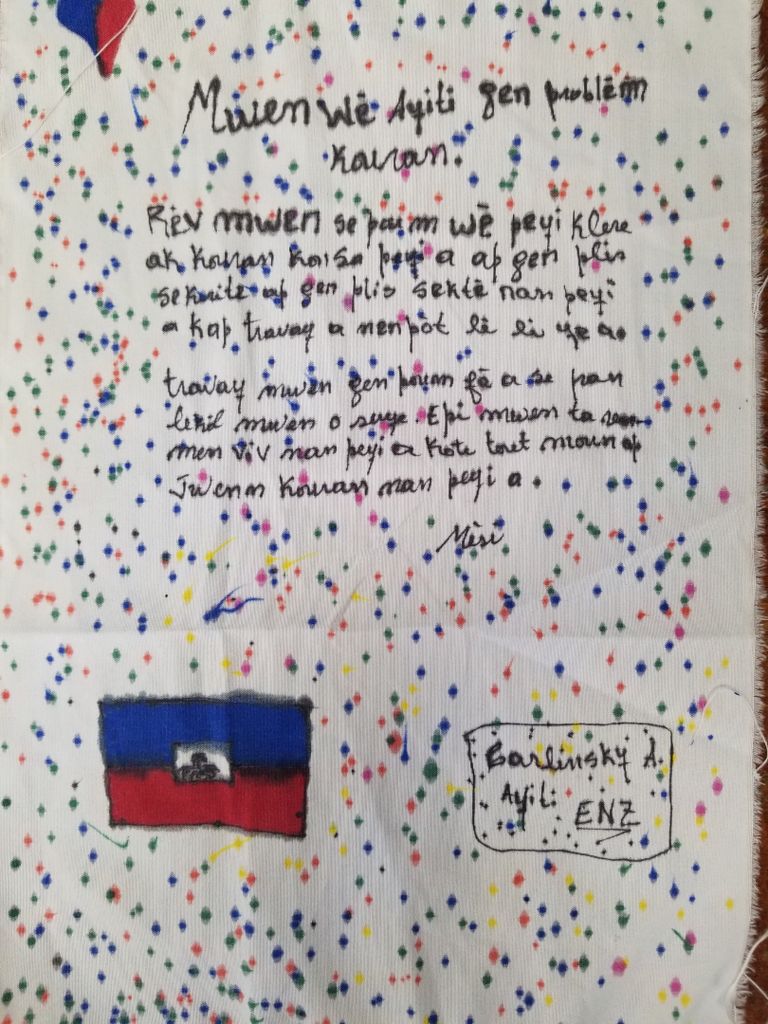 Mwen wè Ayiti gen problèm
kouran.
Rèv mwen se pou m wè peyi klere
ak kouran kòısa peyi a ap gen plis
sekirite ap gen plis sektè nan peyi
a kap travay a nenpòt lè li ye a.
travay mwen gen pou m fè a se pran
lekòl mwen o serye. Epi mwen ta
men viv nan peyi a kote tout moun ap
Jwenn kouran nan peyi a.
Mèsi
Barlinsky A.
Ayiti
ENZ